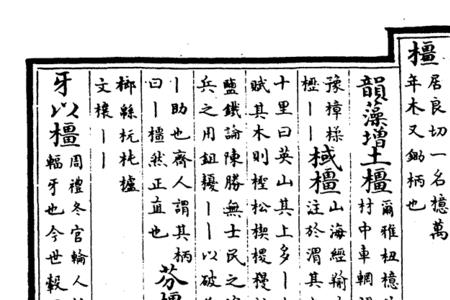 橿居良切一名檍萬
年木又鋤柄也
韻藻增土橿爾雅杻檍
材中車輞
豫樟楺
丨丨棫橿山海經羭
注於渭其
十里曰英山其上多丨
賦其木則檉松楔
鹽鐵論陳勝無士民之
兵之用鉏耰丨丨以破
丨助也齊人謂其柄
曰丨橿然正直也芬橿
榔緜杬杶櫨
文欀丨丨
牙以橿周禮冬官輪人
輻牙也今世轂